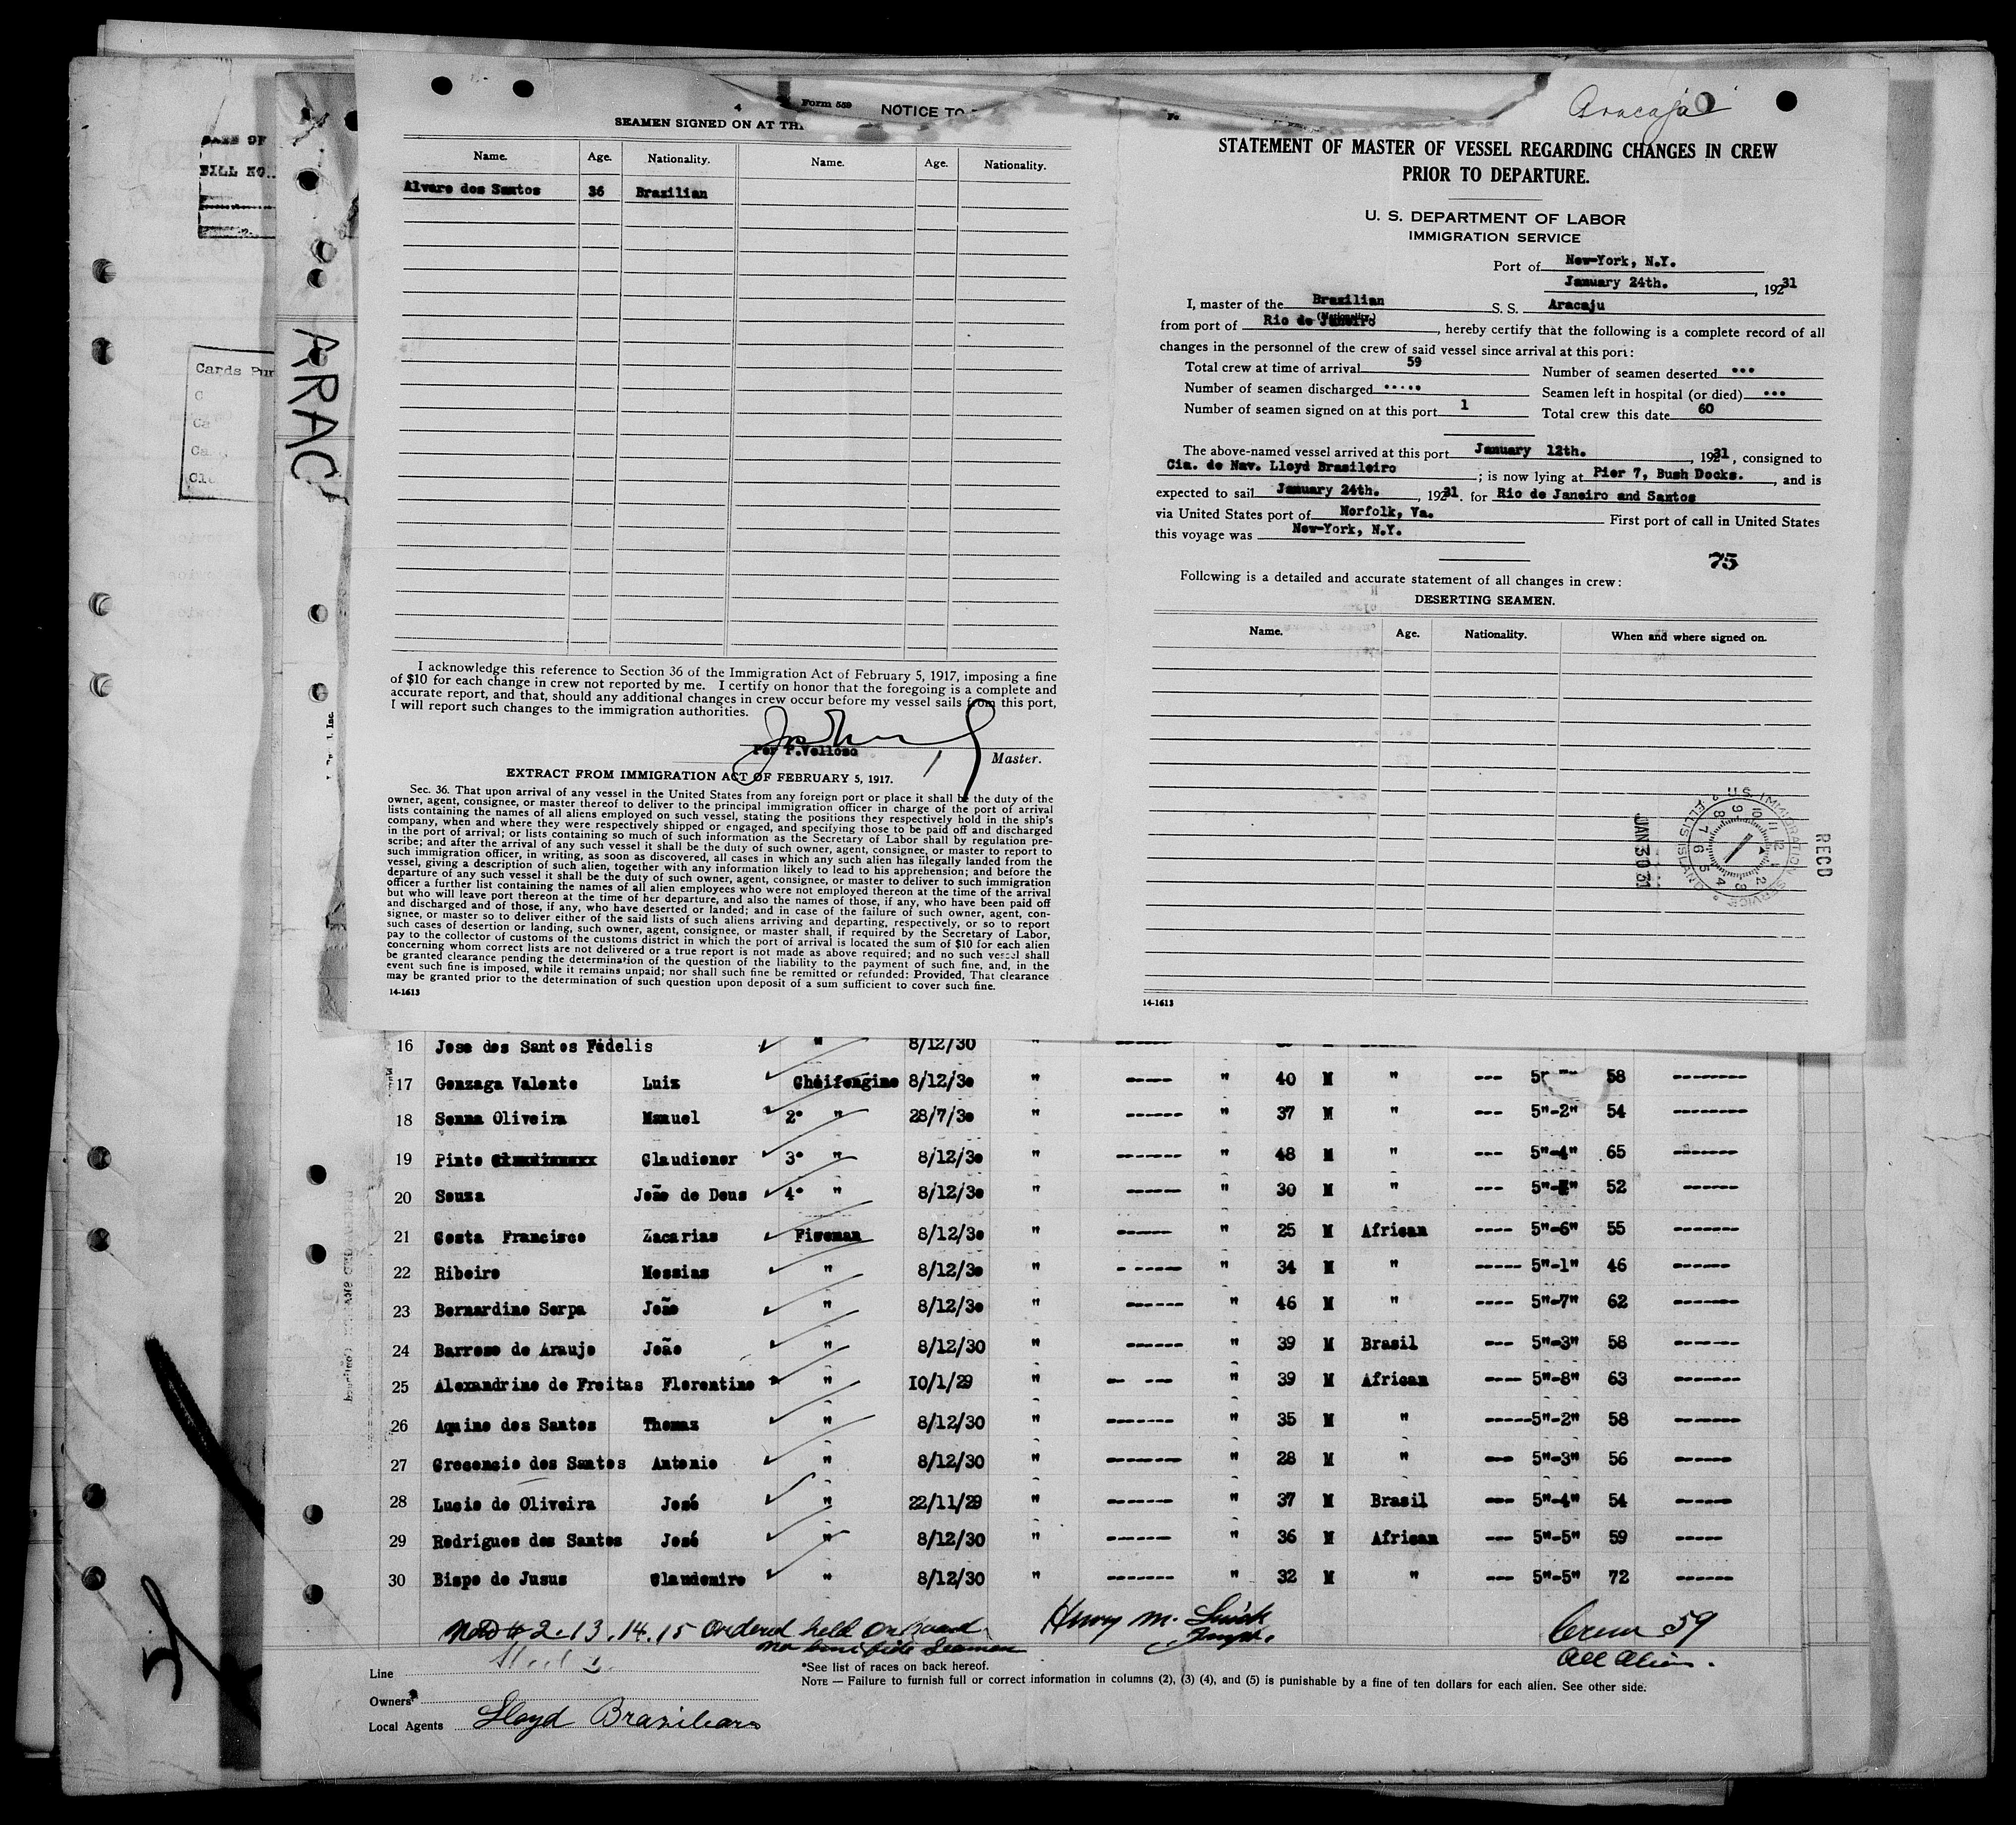 Aracajú
4 Form 559 NOTICE TO
SEAMEN SIGNED ON AT TH
Name. Age. Nationality. Name. Age. Nationality.
Alvaro dos Santos 36 Brazilian
I acknowledge this reference to Section 36 of the Immigration Act of February 5, 1917, imposing a fine
of $10 for each change in crew not reported by me. I certify on honor that the foregoing is a complete and
accurate report, and that, should any additional changes in crew occur before my vessel sails from this port,
I will report such changes to the immigration authorities.
Per P.Velloso
Master.
EXTRACT FROM IMMIGRATION ACT OF FEBRUARY 5, 1917.
Sec. 36. That upon arrival of any vessel in the United States from any foreign port or place it shall be the duty of the
owner, agent, consignee, or master thereof to deliver to the principal immigration officer in charge of the port of arrival
lists containing the names of all aliens employed on such vessel, stating the positions they respectively hold in the ship's
company, when and where they were respectively shipped or engaged, and specifying those to be paid off and discharged
in the port of arrival; or lists containing so much of such information as the Secretary of Labor shall by regulation pre-
scribe; and after the arrival of any such vessel it shall be the duty of such owner, agent, consignee, or master to report to
such immigration officer, in writing, as soon as discovered, all cases in which any such alien has illegally landed from the
vessel, giving a description of such alien, together with any information likely to lead to his apprehension; and before the
departure of any such vessel it shall be the duty of such owner, agent, consignee, or master to deliver to such immigration
officer a further list containing the names of all alien employees who were not employed thereon at the time of the arrival
but who will leave port thereon at the time of her departure, and also the names of those, if any, who have been paid off
and discharged and of those, if any, who have deserted or landed; and in case of the failure of such owner, agent, con-
signee, or master so to deliver either of the said lists of such aliens arriving and departing, respectively, or so to report
such cases of desertion or landing, such owner, agent, consignee, or master shall, if required by the Secretary of Labor,
pay to the collector of customs of the customs district in which the port of arrival is located the sum of $10 for each alien
concerning whom correct lists are not delivered or a true report is not made as above required; and no such vessel shall
be granted clearance pending the determination of the question of the liability to the payment of such fine, and, in the
event such fine is imposed, while it remains unpaid; nor shall such fine be remitted or refunded: Provided, That clearance
may be granted prior to the determination of such question upon deposit of a sum sufficient to cover such fine.
14-1613
STATEMENT OF MASTER OF VESSEL REGARDING CHANGES IN CREW
PRIOR TO DEPARTURE.
U. S. DEPARTMENT OF LABOR
IMMIGRATION SERVICE
Port of New-York, N.Y.
January 24th. , 19231
I, master of the Brazilian S. S. Aracaju
(Nationality.)
from port of Rio de Janeiro , hereby certify that the following is a complete record of all
changes in the personnel of the crew of said vessel since arrival at this port:
Total crew at time of arrival 59 Number of seamen deserted •••
Number of seamen discharged ••••• Seamen left in hospital (or died) •••
Number of seamen signed on at this port 1 Total crew this date 60
The above-named vessel arrived at this port January 12th. , 19231, consigned to
Cia. de Nav. Lloyd Brasileiro ; is now lying at Pier 7, Bush Docks. , and is
expected to sail January 24th. , 19231. for Rio de Janeiro and Santos
via United States port of Norfolk, Va. First port of call in United States
this voyage was New-York, N.Y.
75
Following is a detailed and accurate statement of all changes in crew:
DESERTING SEAMEN.
Name. Age. Nationality. When and where signed on.
U.S. IMMIGRATION SERVICE ELLIS ISLAND
RECD
JAN 30 31
14-1613
BILL NO.
Cards Pur
ARAC
16 Jose dos Santos Fidelis " 8/12/30 " ----- "
17 Gonzaga Valente Luiz Cheifengine 8/12/30 " ----- " 40 M " --- 58 --------
18 Senna Oliveira Manuel 2º " 28/7/30 " ------ " 37 M " --- 5"-2" 54 --------
19 Pinto Claudionor 3º " 8/12/30 " ------ " 48 M " --- 5"-4" 65 -------
20 Souza João de Deus 4º " 8/12/30 " ------ " 30 M " --- 5"- 52 ------
21 Costa Francisco Zacarias Fireman 8/12/30 " ------ " 25 M African ---- 5"-6" 55 -------
22 Ribeiro Messias " 8/12/30 " ------ " 34 M " ----- 5"-1" 46 ------
23 Bernardino Serpa João " 8/12/30 " ------ " 46 M " ---- 5"-7" 62 -------
24 Barroso de Araujo João " 8/12/30 " ------ " 39 M Brasil --- 5"-3" 58 -------
25 Alexandrino de Freitas Florentino " 10/1/29 " - --- " 39 M African ---- 5"-8" 63 -------
26 Aquino dos Santos Thomaz " 8/12/30 " ------- " 35 M " -----5"-2" 58 -------
27 Crescencio dos Santos Antonio " 8/12/30 " -------- " 28 M " --- 5"-3" 56 ------
28 Lucio de Oliveira José " 22/11/29 " ------- " 37 M Brasil --- 5"-4" 54 ------
29 Rodrigues dos Santos José " 8/12/30 " ------- " 36 M African --- 5"-5" 59 -----
30 Bispo de Jusus Claudemiro " 8/12/30 " ------- " 32 M " --- 5"-5" 72 ------
2.13.14.15 Ordered held on board
no bonifide Seamen
Henry M.
Crew 59
All Alien.
Line
*See list of races on back hereof.
NOTE — Failure to furnish full or correct information in columns (2), (3) (4), and (5) is punishable by a fine of ten dollars for each alien. See other side.
Owners
Local Agents Lloyd Braziliaro